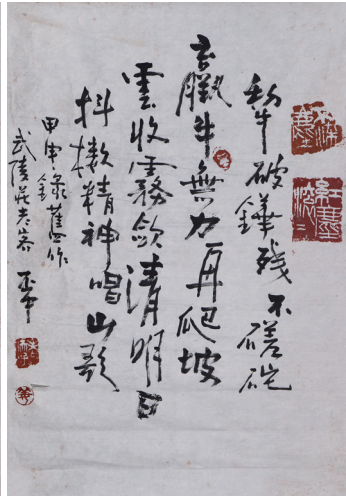 犁破鏵残不磋砣
羸牛無力再爬坡
雲收霧斂清明日
抖擻精神唱山歌
甲申錄舊作
武陵